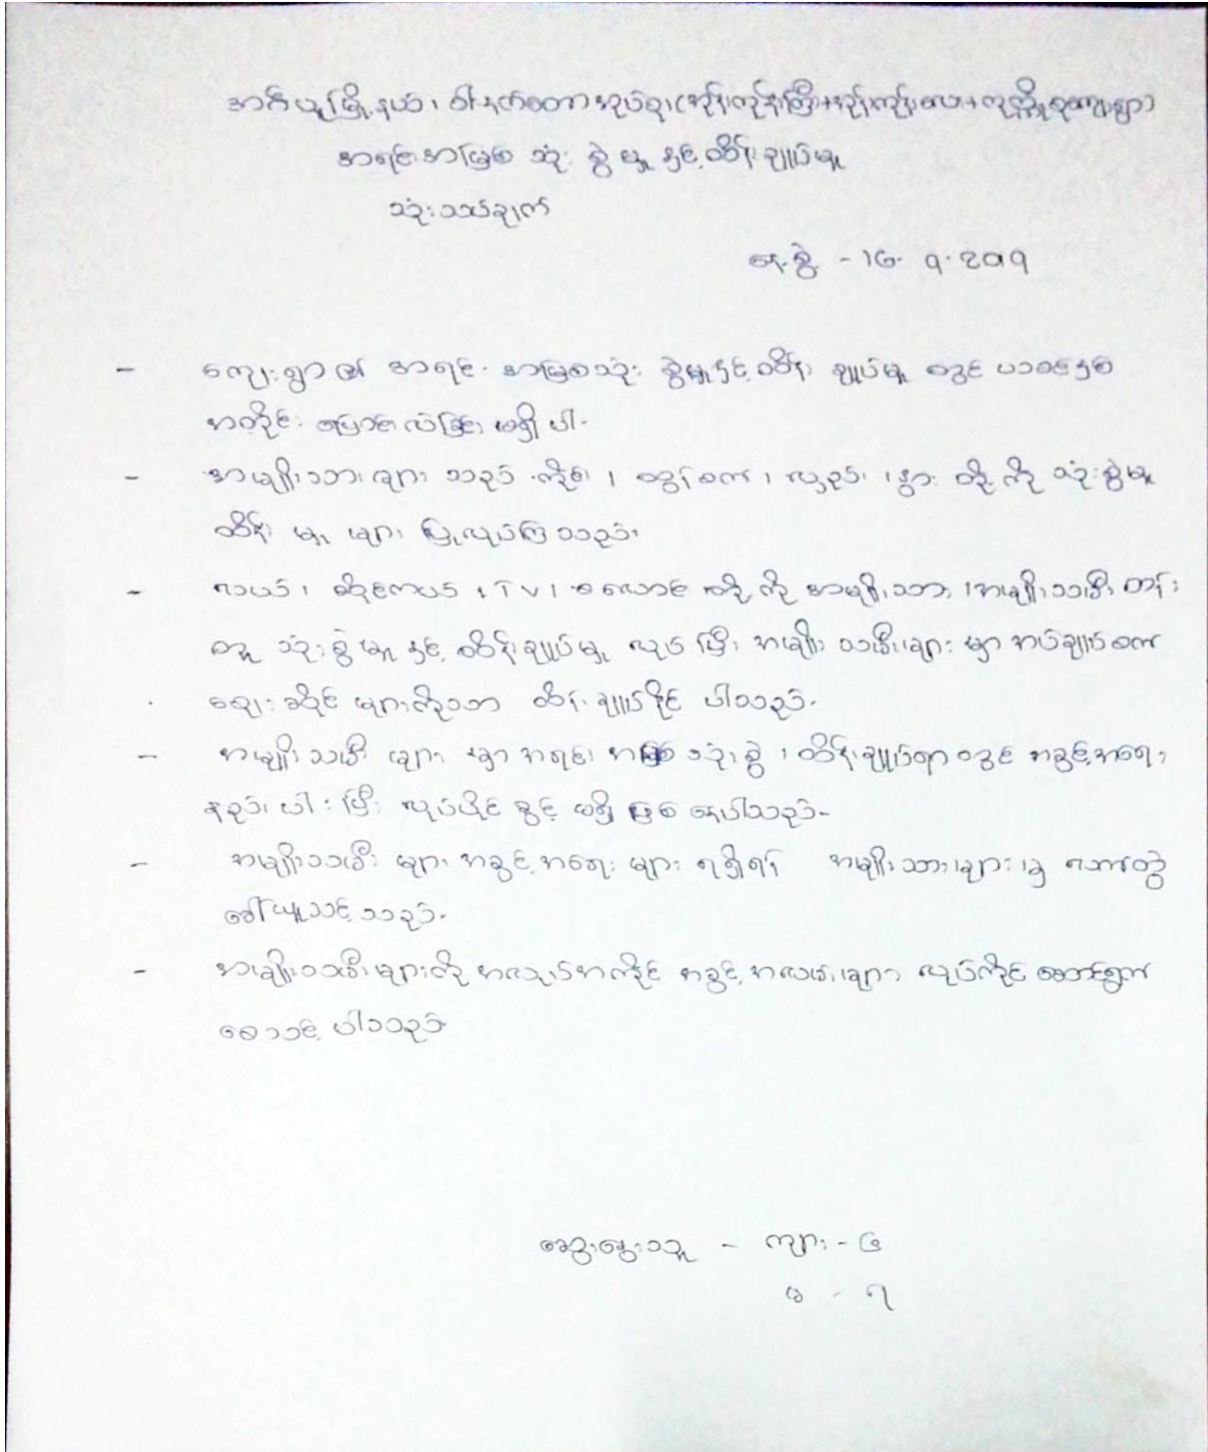 အင်္ဂပူမြို့နယ်၊ ဝါးနက်တောအုပ်စု၊ (အုန်းကုန်းကြီး+အုန်းကုန်းလေး+ကုက္ကိုစုကျေးရွာ)
အရင်းအမြစ် သုံးစွဲမှုနှင့် ထိန်းချုပ်မှု
သုံးသပ်ချက်
နေ့စွဲ - ၁၆. ၇. ၂၀၁၇
- ကျေးရွာ၏ အရင်းအမြစ်သုံးစွဲမှုနှင့် ထိန်းချုပ်မှု တွင် ယခင်နှစ်
အတိုင်း ပြောင်းလဲခြင်း မရှိပါ။
- အမျိုးသားများ သည် ၊ ထွန်စက်၊ လှည်း၊ နွား တို့ကို သုံးစွဲမှု
ထိန်းမှုများ ပြုလုပ်ကြသည်။
- လယ်၊ ဆိုင်ကယ်၊ TV၊ တို့ကို အမျိုးသား၊ အမျိုးသမီး တန်း
တူ သုံးစွဲမှုနှင့် ထိန်းချုပ်မှု လုပ်ပြီး အမျိုးသမီးများ မှာ အပ်ချုပ်စက်
ဈေးဆိုင်များကိုသာ ထိန်းချုပ်နိုင်ပါသည်။
- အမျိုးသမီးများ မှာ အရင်းအမြစ်သုံးစွဲ၊ ထိန်းချုပ်ရာတွင် အခွင့်အရေး
နည်းပါးပြီး လုပ်ပိုင်ခွင့် မရှိ ဖြစ်နေပါသည်။
- အမျိုးသမီးများ အခွင့်အရေးများ ရရှိရန် အမျိုးသားများမှ လက်တွဲ
ခေါ်ယူသင့်သည်။
- အမျိုးသမီးများကို အလုပ်အကိုင် အခွင့်အလမ်းများ လုပ်ကိုင် ဆောင်ရွက်
စေသင့်ပါသည်။
ဆွေးနွေးသူ - ကျား - ၆
မ - ၇